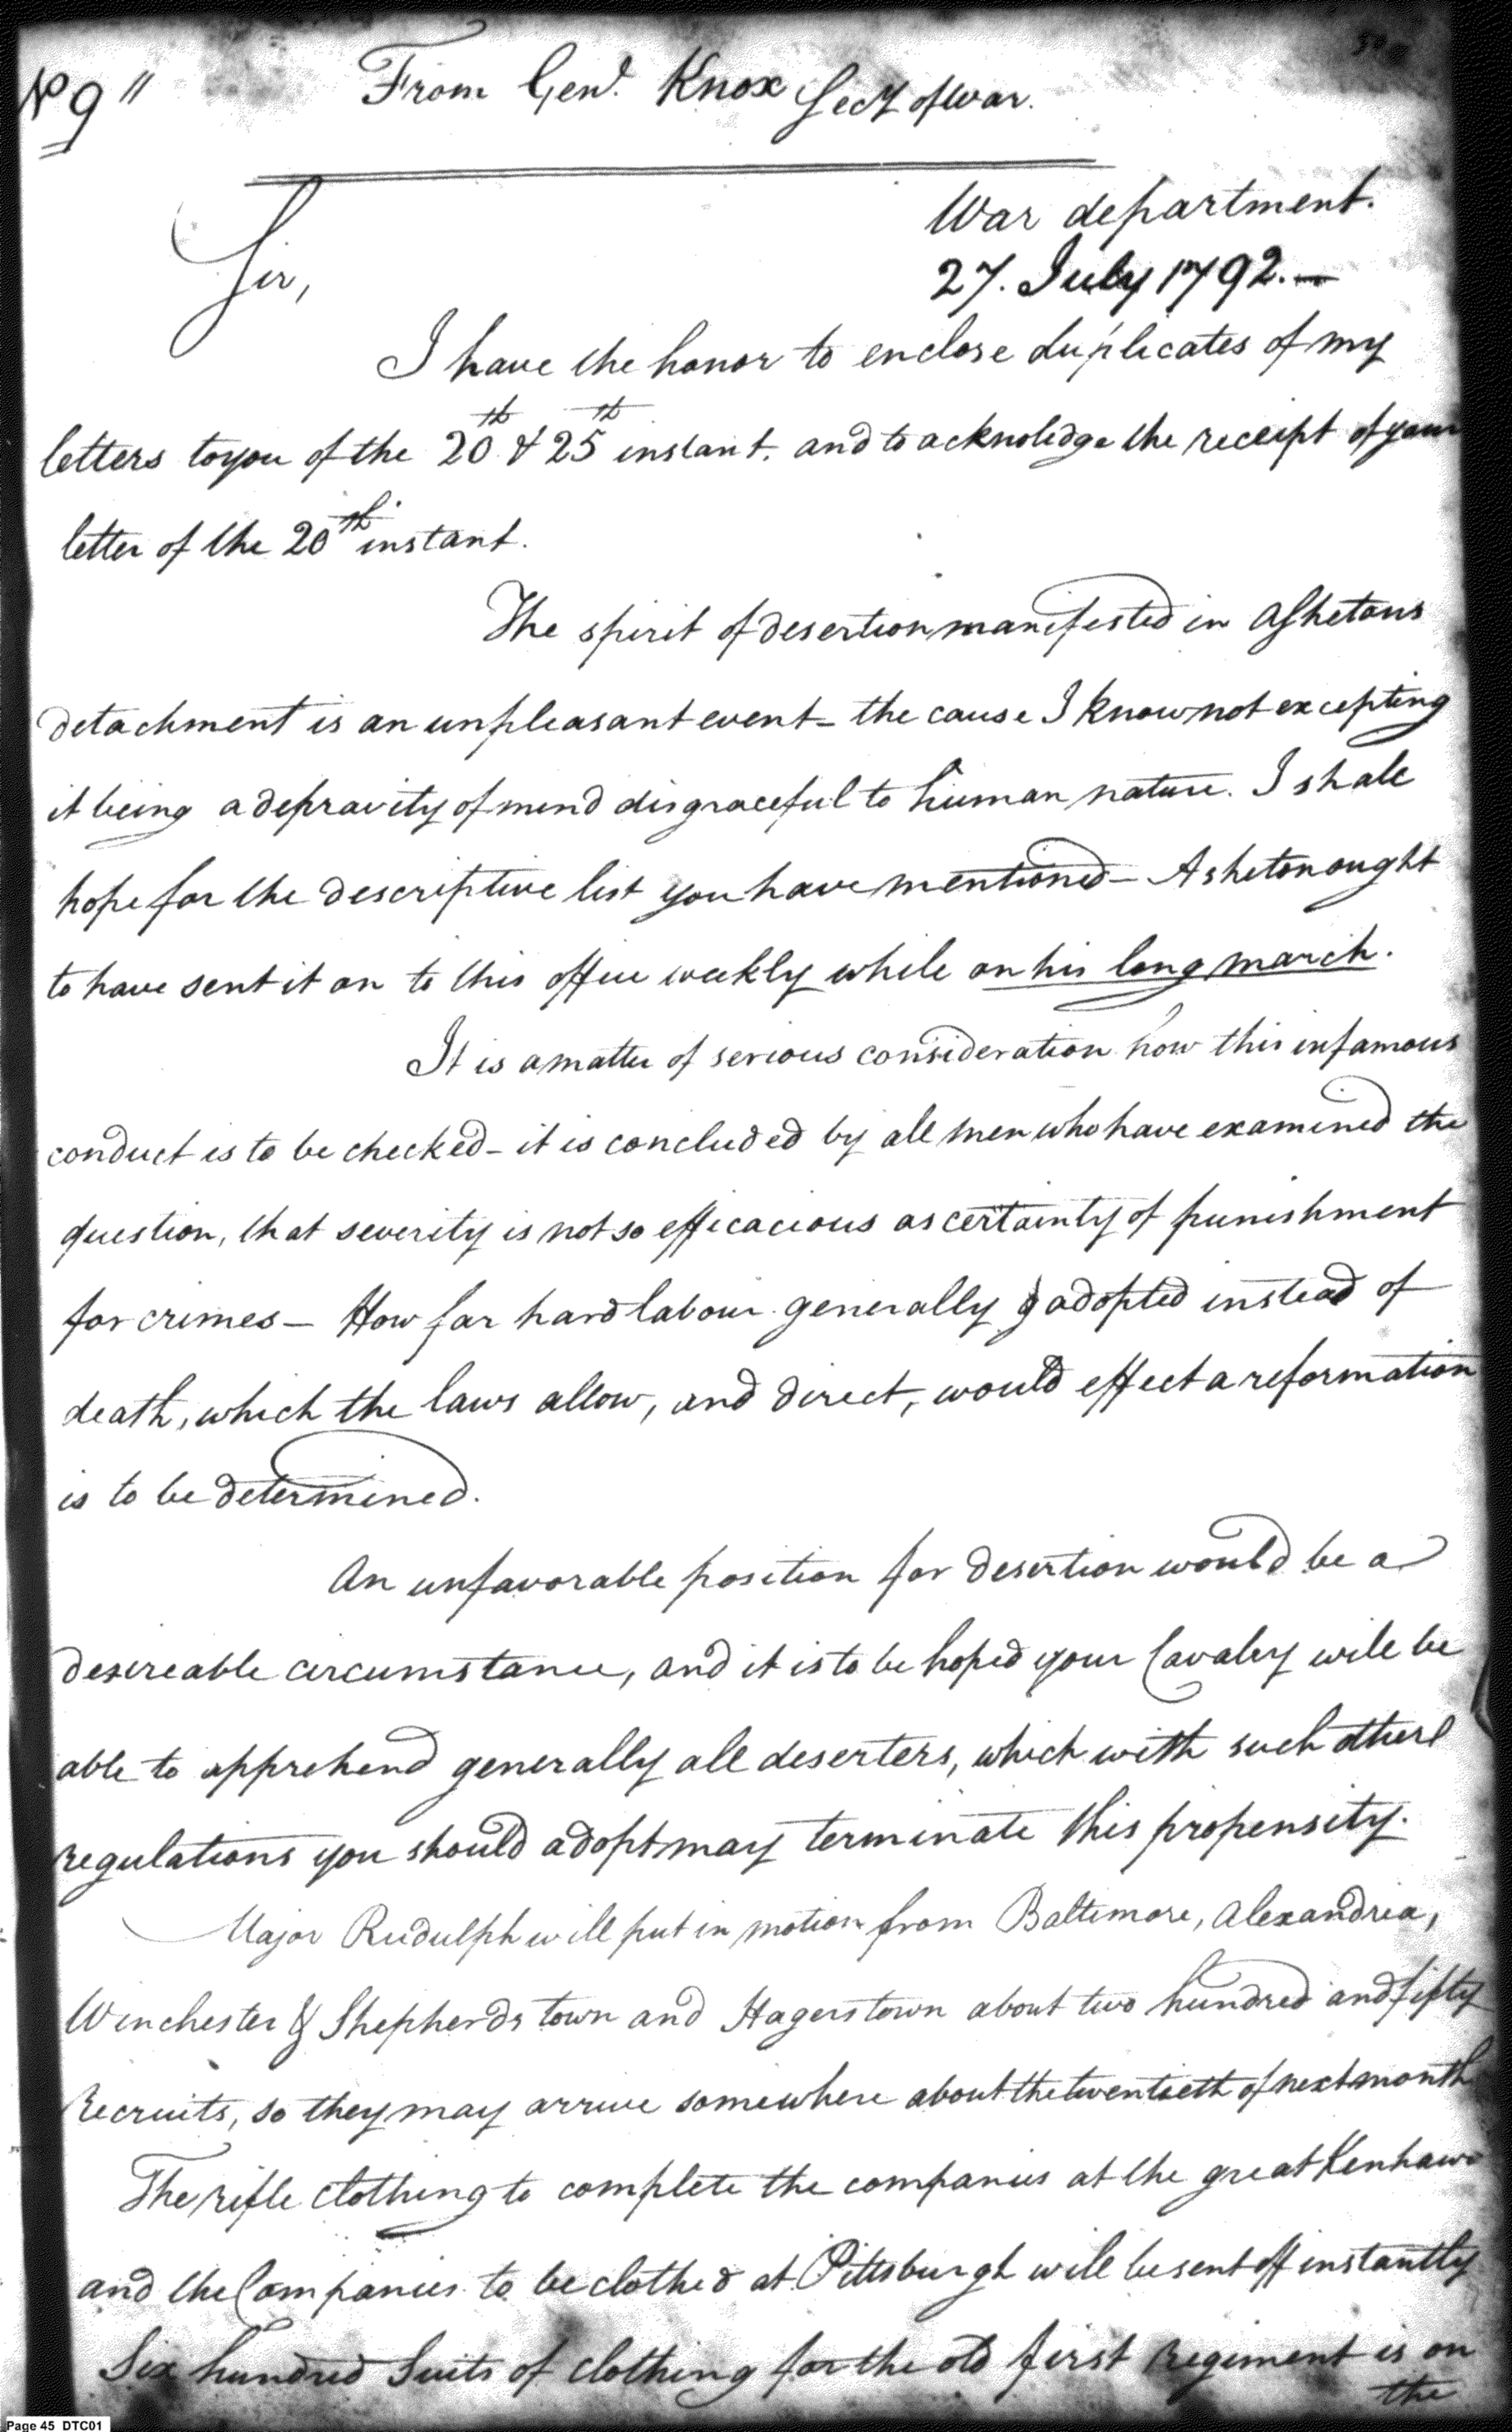 No 9 "
From Genl. Knox Secy of War.
War department.
27. July 1792.—
Sir,
I have the honor to enclose duplicates of my
letters to you of the 20th & 25th instant. and to acknolidge the receipt of your
letter of the 20th instant.
The spirit of desertion manifested in Ashetons
detachment is an unpleasant event - the cause I know not excepting
it being a depravity of mind disgraceful to human nature. I shall
hope for the descriptive list you have mentioned - Asheton ought
to have sent it on to this office weekly while on his long march.
It is a matter of serious consideration how this infamous
conduct is to be checked - it is concluded by all men who have examined the
question, that severity is not so efficacious as certainty of punishment
for crimes — How far hard labour generally adopted instead of
death, which the laws allow, and direct, would effect a reformation
is to be determined.
An unfavorable position for desertion would be a
desireable circumstance, and it is to be hoped your Cavalry will be
able to apprehend generally all deserters, which with such other
regulations you should adopt may terminate this propensity.
Major Rudulph will put in motion from Baltimore, Alexandria,
Winchester & Shepherds town and Hagerstown about two hundred and fifty
recruits, so they may arrive somewhere about the twentieth of next month
The rifle clothing to complete the companies at the great Kenhawa
and the Companies to be clothed at Pittsburgh will be sent off instantly
Six hundred Suits of clothing for the old first regiment is on
the
Page 45 DTC01